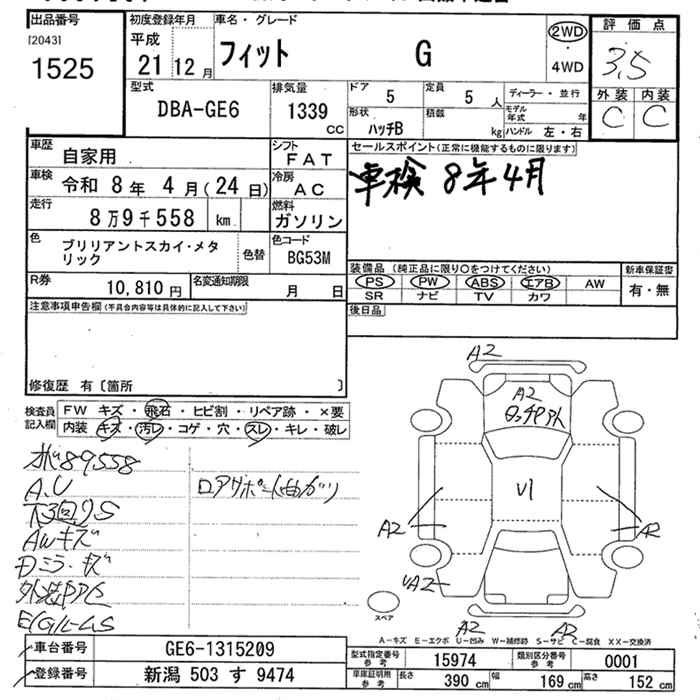 出品番号
[2043]
1525
初度登録年月
平成
21 12 月
車名・グレード
フィット G
2WD
・
4WD
評価点
3.5
外装 内装
C C
型式
DBA-GE6
排気量
1339
CC
ドア
5
定員
5 人
ディーラー・並行
形状
ハッチB
積載
kg
モデル年式 年
ハンドル 左・右
車歴
自家用
シフト
FAT
車検
令和 8年 4月(24日)
冷房
AC
走行
8万9千558 km
燃料
ガソリン
色
ブリリアントスカイ・メタ
リック
色替
色コード
BG53M
R券
10,810 円
名変通知期限
月 日
セールスポイント(正常に機能するものに限ります)
車検 8年4月
装備品 (純正品に限り○をつけてください)
PS PW ABS エアB AW
SR ナビ TV カワ
新車保証書
有・無
後日品
注意事項申告欄(不具合内容等は具体的に記入して下さい)
修復歴 有〔箇所 〕
検査員
記入欄
FW キズ・飛石・ヒビ割・リペア跡・×要
内装 キズ・汚レ・コゲ・穴・スレ・キレ・破レ
89558
A.U
下回りS
AWキズ
ロアサポート曲がり
A2
A2
U1
A2
A2
A2
A2
A2
スペア
A-キズ E-エクボ U-凹み W-補修跡 S-サビ C-腐食 XX-交換済
車台番号
GE6-1315209
登録番号
新潟 503 す 9474
型式指定番号
参考
15974
類別区分番号
参考
0001
車庫証明用
参考
長さ
390 cm
幅
169 cm
高さ
152 cm